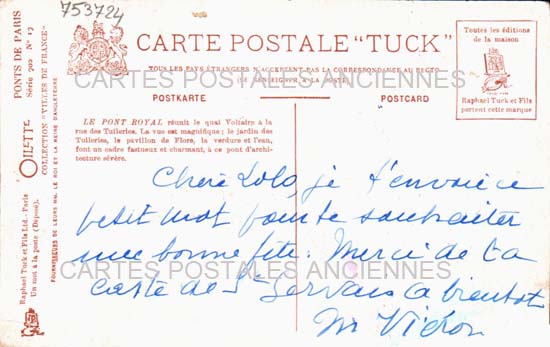 753724
CARTE POSTALE "TUCK"
TOUS LES PAYS ÉTRANGERS N'ACCEPTENT PAS LA CORRESPONDANCE AU RECTO
(SE RENSEIGNER A LA POSTE)
CARTES POSTALES ANCIENNES
POSTKARTE
POSTCARD
Toutes les éditions
de la maison
Raphael Tuck et Fils
portent cette marque
LE PONT ROYAL réunit le quai Voltaire à la
rue des Tuileries. La vue est magnifique; le jardin des
Tuileries, le pavillon de Flore, la verdure et l'eau,
font un cadre fastueux et charmant, à ce pont d'ar-
chitecture sévère.
PONTS DE PARIS
Série 702 N° 17
OILETTE
COLLECTION "VILLES DE FRANCE"
FOURNISSEURS DE LEURS MM. LE ROI ET LA REINE D'ANGLETERRE
Raphael Tuck et Fils Ltd. - Paris
Un mot à la poste (Déposé).
Chère Lolo, je t'envoie ce
petit mot pour te souhaiter
une bonne fête. Merci de ta
CARTES POSTALES ANCIENNES
carte de St Gervais a bientot
M